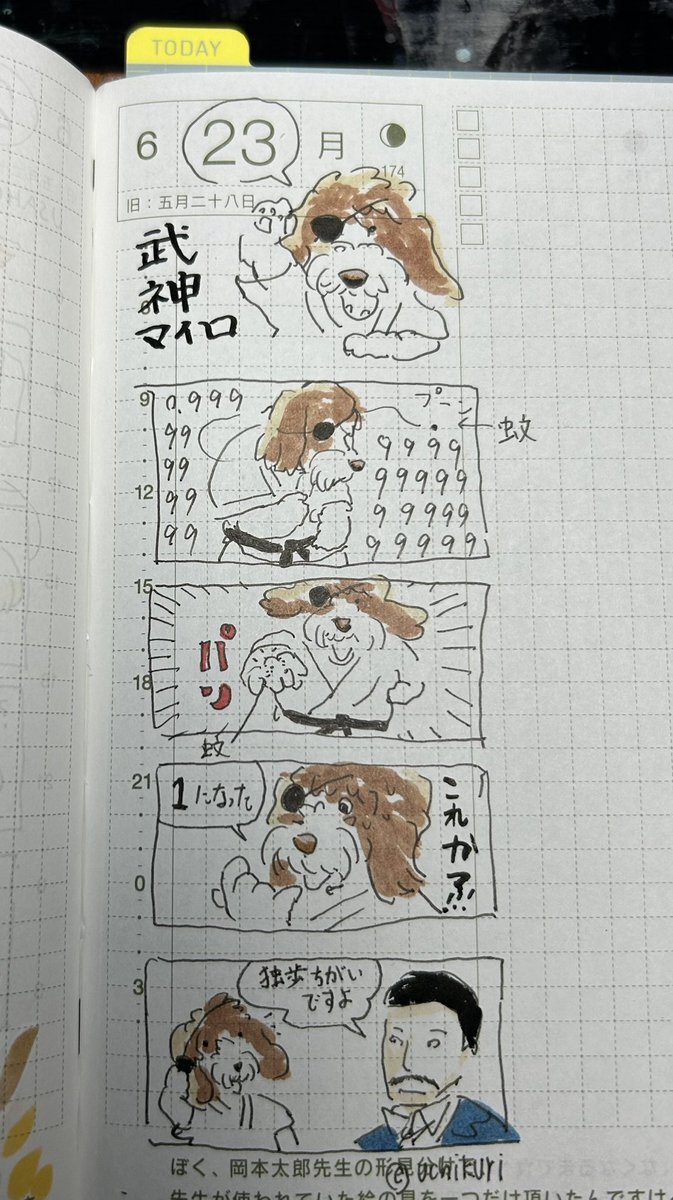 TODAY
6 23 月
174
旧：五月二十八日
武
神
マイロ
9
0.999
99
99
99
99
プーン
蚊
9999
99999
99999
99999
12
15
パン
蚊
18
21
1になった
これかァ!!!
0
3
独歩ちがい
ですよ
ぼく、岡本太郎先生の形見分け
©ochikuri
先生が使われていた絵の具を一つだけ頂いたんですけ